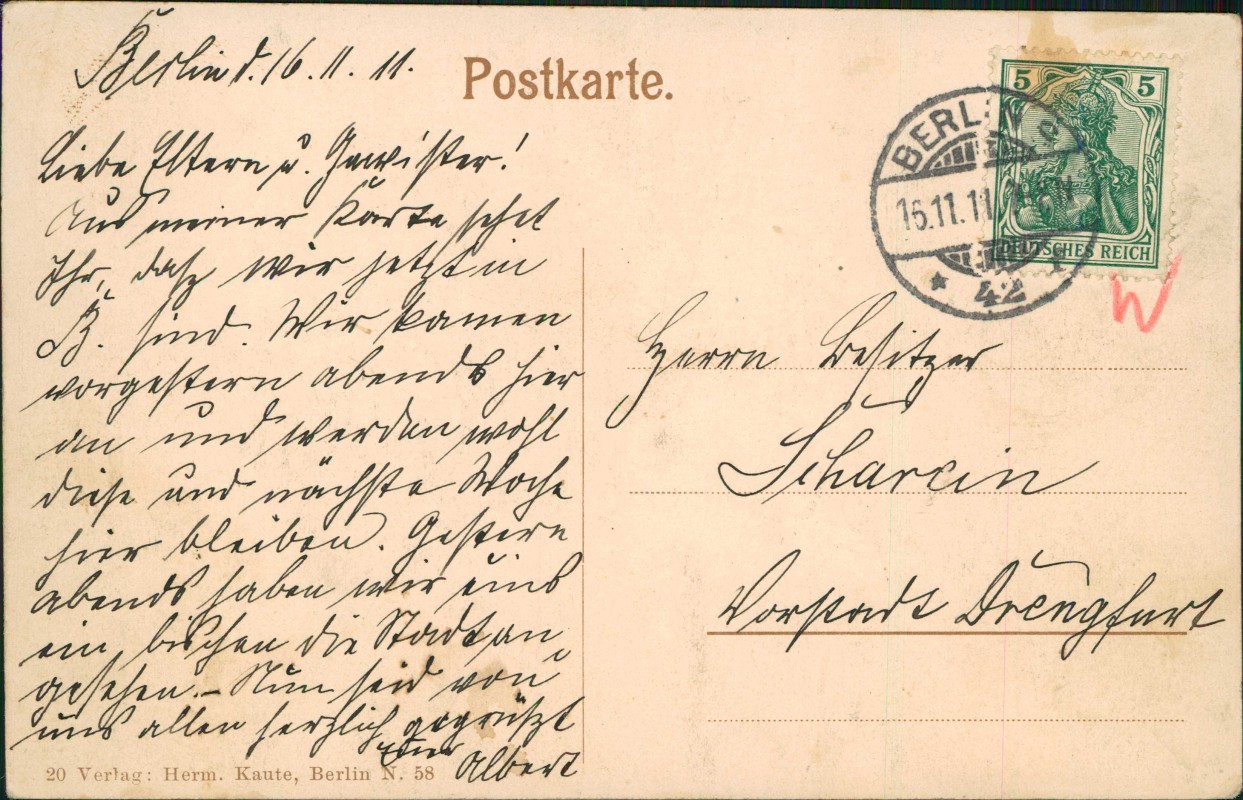 Berlin d. 16.11.11.
Postkarte.
5 5
DEUTSCHES REICH
BERLIN
16.11.11
* 42
W
Liebe Eltern u. Gewister!
Aus meiner Karte sehet
Ihr, dasz wir jetzt in
B. sind. Wir kamen
vorgestern abends hier
an und werden wohl
diese und nächste Woche
hier bleiben. Gestern
abends haben wir uns
ein bischen die Stadt an
gesehen. – Nun seid von
uns allen herzlich gegrüszt
Euer Albert
20 Verlag: Herm. Kaute, Berlin N. 58
Herrn Besitzer
Scharein
Vorstadt Drengfurt